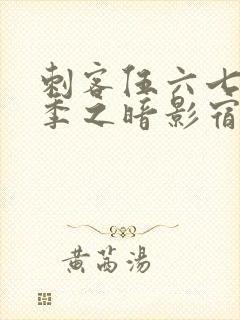 刺客伍六七
季之暗影宿
黄芮汤